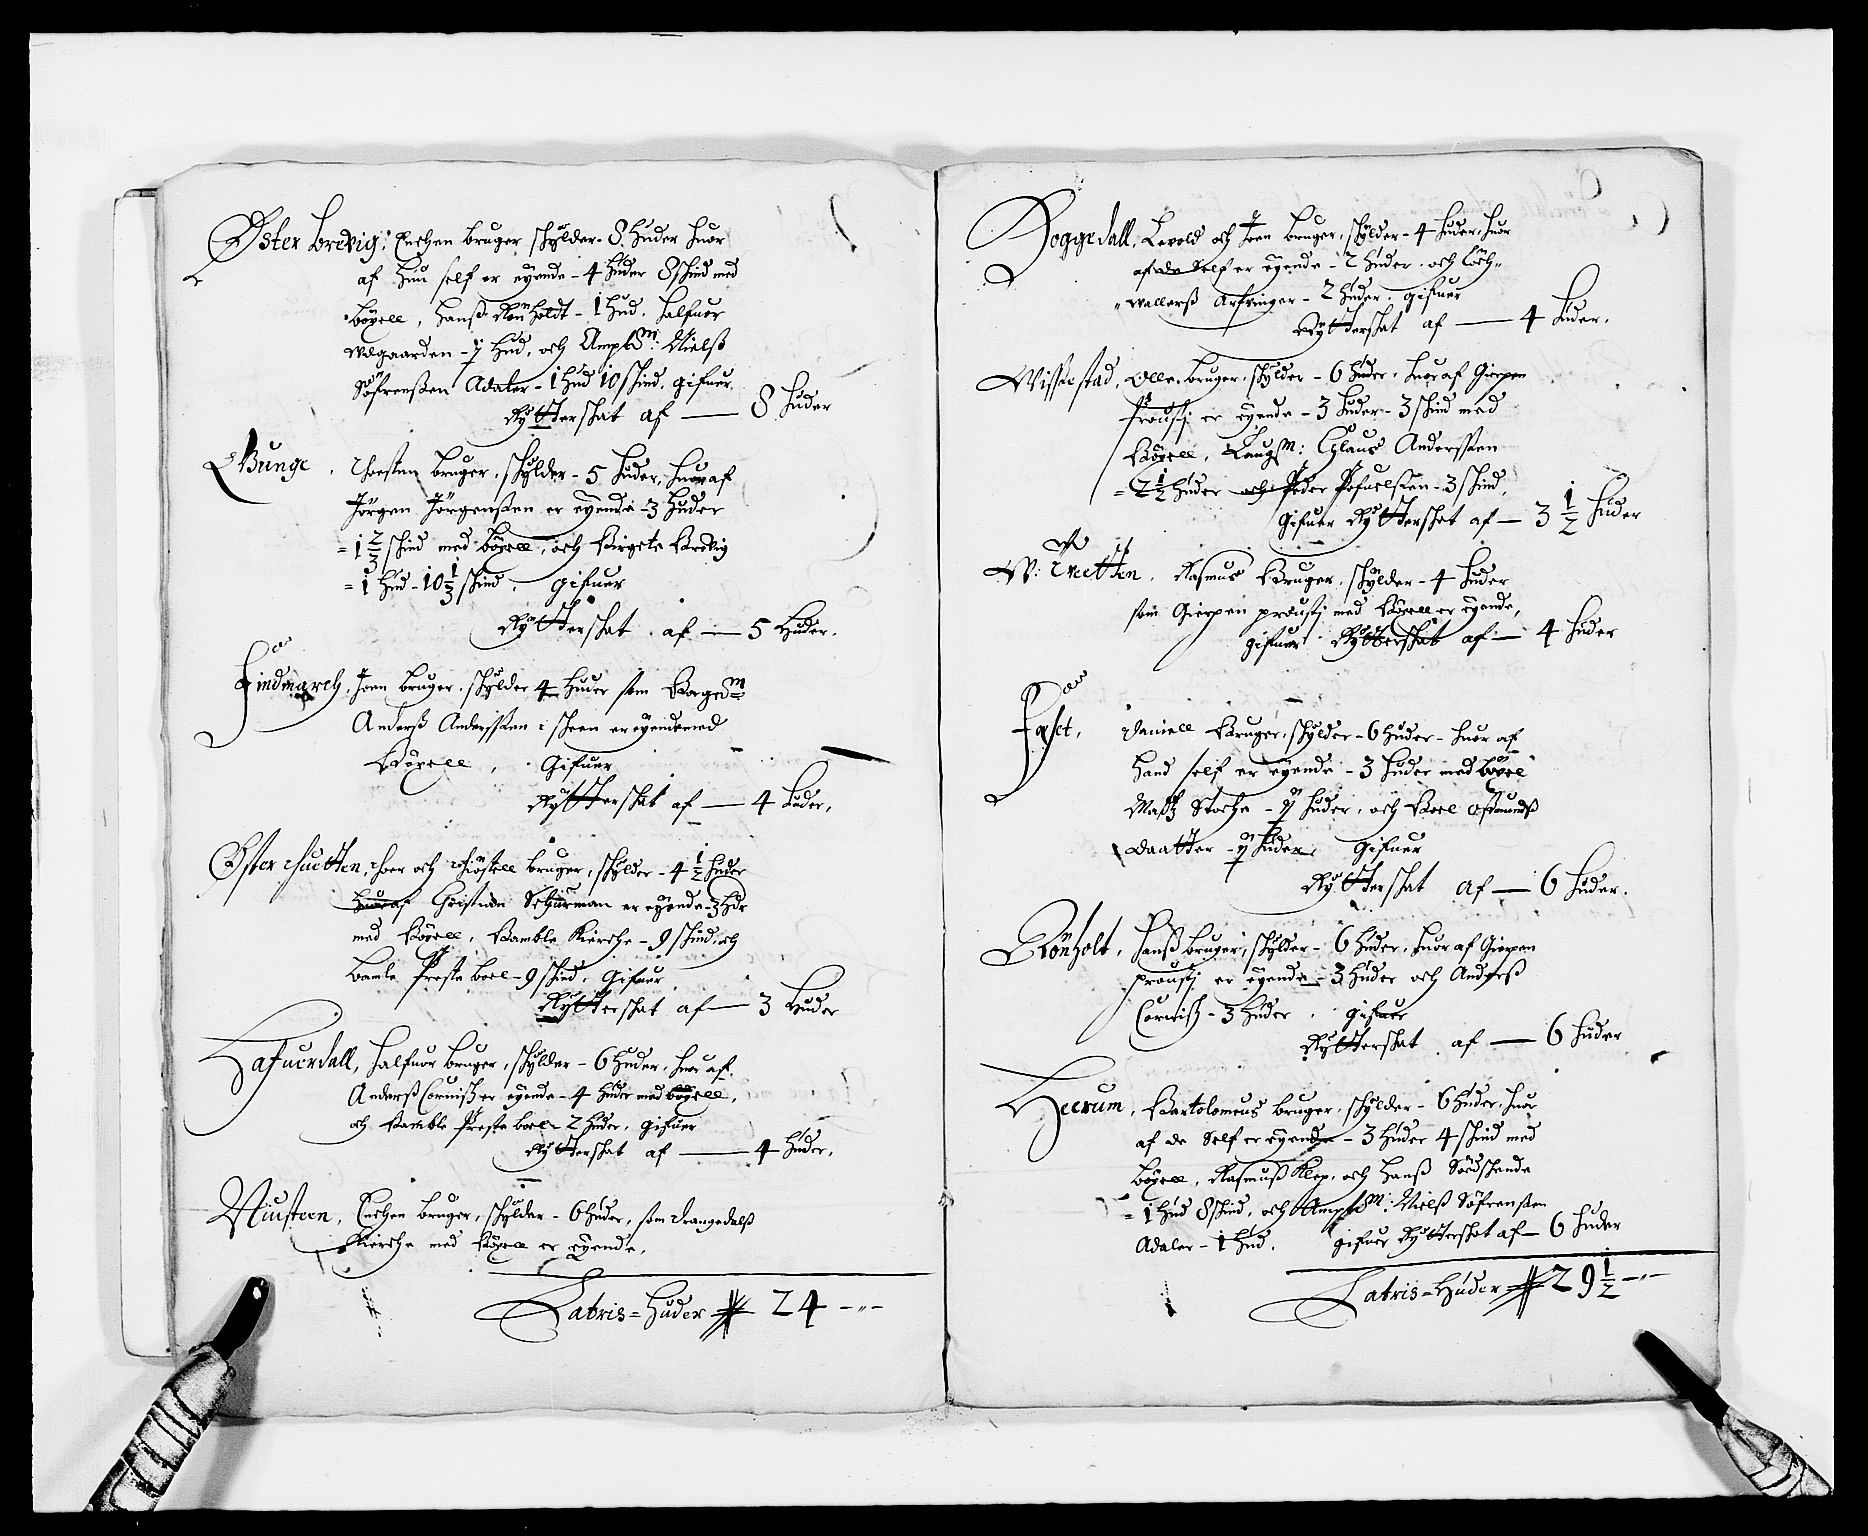 Øster brevig, Enchen bruger skylder - 8 Huder huor
af Hun self er eyende - 4 Huder 8 skind med
böxell, Hanß Rönholdt - 1 Hud. Halfuor
- ½ Hud, och Ampts m: Nielß
Söfrenßen Adaler - 1 Hud 10 skind. gifuer
Rytterskat af — 8 Huder
Bunge, Thorsten bruger, skylder - 5 Huder, huor af
Jörgen Jörgenßen er eyende - 3 Huder
= 1 2/3 skind med böxell, och Birgete Brevig
= 1 Hud - 10 1/3 skind. gifuer
Rytterskat af — 5 Huder.
Findmarch, Joen bruger, skylder 4 Huder som Borgem
Anderß Anderßen i Skeen er eyende med
Böxell, Gifuer
Rytterskat af — 4 Huder,
Øster Tuetten, Thoer och Kiöstell bruger, skylder - 4 ½ Huder
Huor af Christian Schürman er eyende - 3 Hdr
med Böxell, Bamble Kierche - 9 skind, och
Bamle Preste boel - 9 skind, Gifuer
Rytterskat af — 3 Huder
Hafuerdall, Halfuor bruger, skylder - 6 Huder, huor af
Anderß Corniß er eyende - 4 Huder med böxell,
och Bamble Preste boel - 2 Huder, gifuer
Rytterskat af — 4 Huder,
Niusteen, Enchen bruger, skylder - 6 Huder, som Drangedalß
Kierche med Böxell er eyende,
Latris = Huder 24 - " -
Doggedall, Levold och Joen bruger, skylder - 4 Huder, huor
af de Self er eyende - 2 Huder, och Cöch-
" wallerß Arfvinger - 2 Huder. gifuer
Rytterskat af — 4 Huder.
Wissestad, Olle bruger, skylder - 6 Huder, huor af Gierpen
Proustj er eyende - 3 Huder - 3 skind med
Böxell, Laugm: Claus Anderßen
= 2 ½ Huder och Peder Pofuelßen - 3 skind,
Gifuer Rytterskat af — 3 ½ Huder
W: Tvetten, Rasmus Bruger, skylder - 4 Huder
som Gierpen proustj med Böxell er eyende,
gifuer Rytterskat af — 4 Huder
Foxset, Daniell Bruger, skylder - 6 Huder - huor af
Hand self er eyende - 3 Huder med böxel
Matz Stoche - ½ Huder, och Boel Osmundß
daatter - ½ Huder, Gifuer
Rytterskat af — 6 Huder.
Rönholt, Hanß bruger, skylder - 6 Huder, huor af Gierpen
proustj er eyende - 3 Huder och Anderß
Corniß - 3 Huder, Gifuer
Rytterskat af — 6 Huder
Heerum, Bartolomeus bruger, skylder - 6 Huder, huor
af de Self er eyende - 3 Huder 4 skind med
Böxell, Rasmuß Klep, och Hanß
= 1 Hud 8 skind, och Amptsm: Nielß Söfrenßen
Adaler - 1 Hud, gifuer Rytterskat af — 6 Huder
Latris = Huder 29 ½ - " -